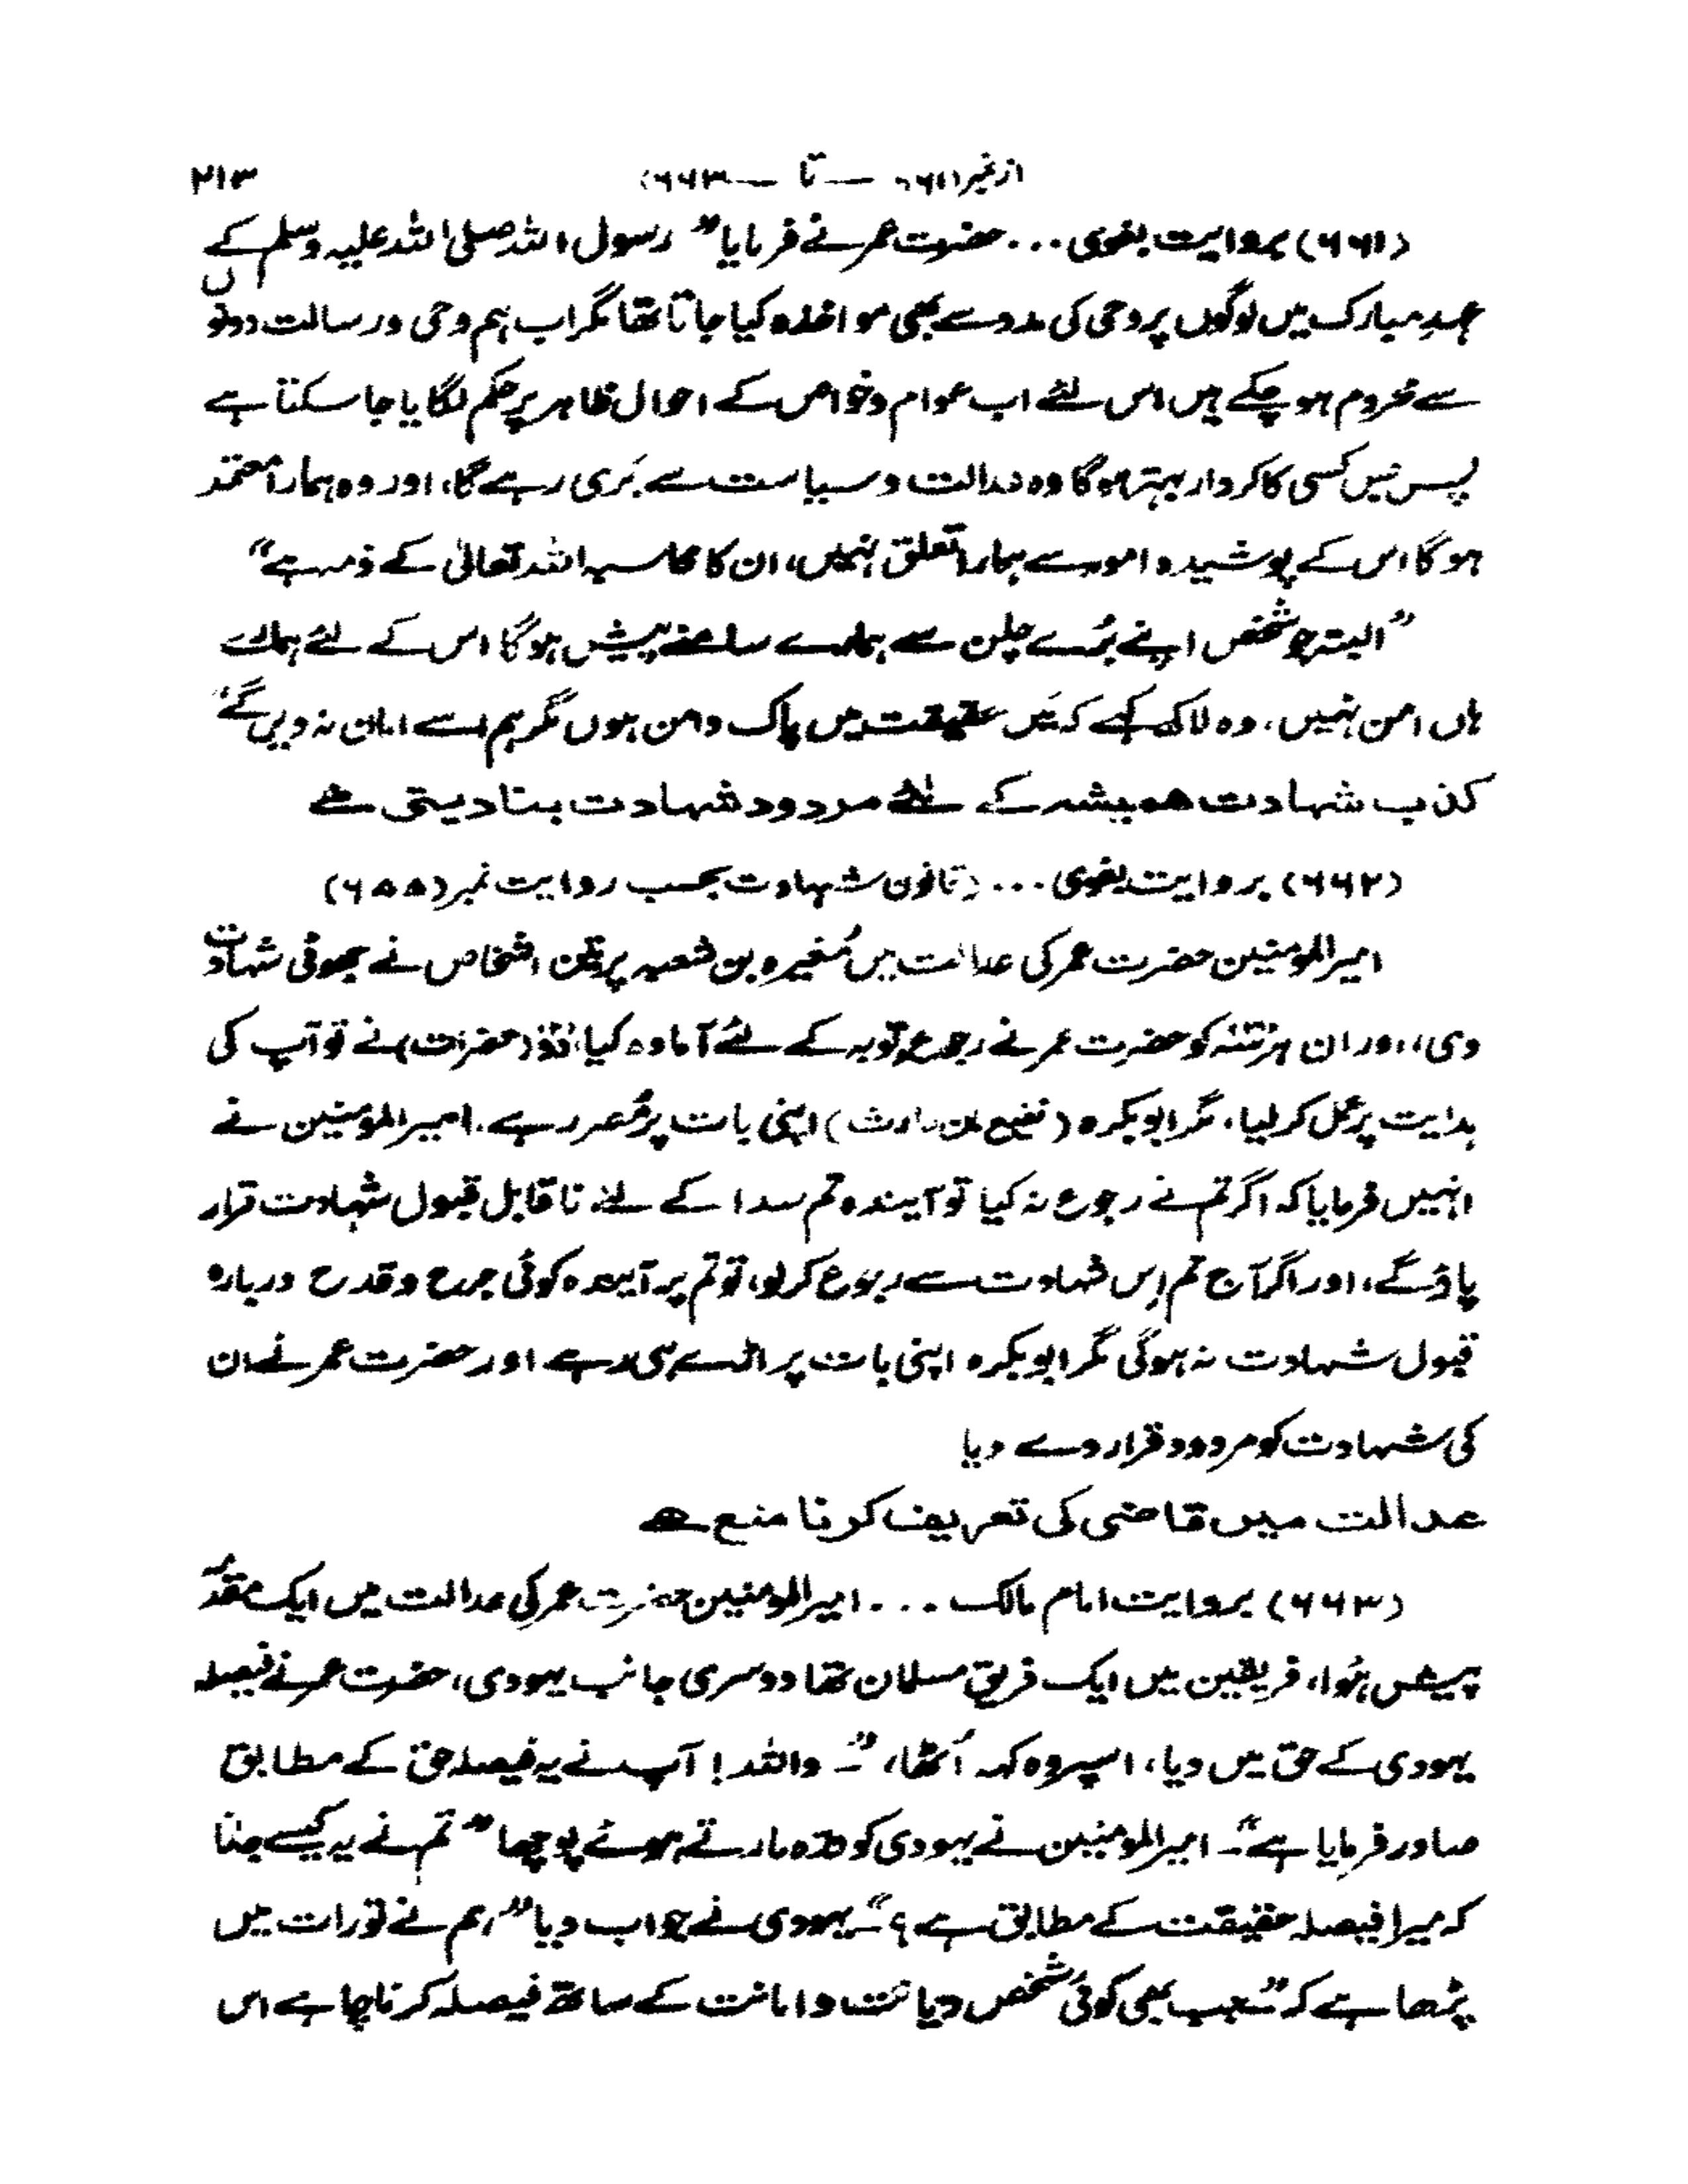 از نمبر (۶۶۱ — تا — ۶۶۳) ۲۱۳
(۶۶۱) بروایت بغوی ... حضرت عمر نے فرمایا ” رسول اللہ صلی اللہ علیہ وسلم کے
عہدِ مبارک میں لوگوں پر وحی کی مدد سے بھی مواخذہ کیا جاتا تھا مگر اب ہم وحی ورسالت دونوں
سے محروم ہو چکے ہیں اس لئے اب عوام وخواص کے احوال ظاہر پر حکم لگایا جا سکتا ہے
پس جس کسی کا کردار بہتر ہوگا وہ عدالت وسیاست سے بَری رہے گا، اور وہ ہمارا معتمد
ہوگا اس کے پوشیدہ امور سے ہمارا تعلق نہیں، ان کا محاسبہ اللہ تعالیٰ کے ذمہ ہے “
” البتہ جو شخص اپنے بُرے چلن سے ہمارے سامنے پیش ہوگا اس کے لئے ہمارے
ہاں امن نہیں، وہ لاکھ کہے کہ مَیں حقیقت میں پاک دامن ہوں مگر ہم اسے امان نہ دیں گے “
کذب شہادت ہمیشہ کے لئے مردود شہادت بنا دیتی ہے
(۶۶۲) بروایت بغوی ... (قانون شہادت بحسب روایت نمبر (۶۵۵)
امیرالمومنین حضرت عمر کی عدالت میں مُغیرہ بن شعبہ پر تین اشخاص نے جھوٹی شہادت
دی، اور ان ہر تینہ کو حضرت عمر نے رجوع وتوبہ کے لئے آمادہ کیا، دو (حضرات) نے تو آپ کی
ہدایت پر عمل کر لیا، مگر ابوبکرہ (نفیع بن حارث) اپنی بات پر مُصر رہے. امیرالمومنین نے
انہیں فرمایا کہ اگر تم نے رجوع نہ کیا تو آیندہ تم سدا کے لئے ناقابل قبول شہادت قرار
پاؤگے، اور اگر آج تم اِس شہادت سے رجوع کرلو، تو تم پر آیندہ کوئی جرح وقدح دربارہ
قبول شہادت نہ ہوگی مگر ابوبکرہ اپنی بات پر اڑے ہی رہے اور حضرت عمر نے ان
کی شہادت کو مردود قرار دے دیا
عدالت میں قاضی کی تعریف کرنا منع ہے
(۶۶۳) بروایت امام مالک ... امیرالمومنین حضرت عمر کی عدالت میں ایک مقدمہ
پیش ہُوا، فریقین میں ایک فریق مسلمان تھا دوسری جانب یہودی، حضرت عمر نے فیصلہ
یہودی کے حق میں دیا، اسپر وہ کہہ اُٹھا، ”۔ واللہ! آپ نے یہ فیصلہ حق کے مطابق
صادر فرمایا ہے“۔ امیرالمومنین نے یہودی کو درّہ مارتے ہوئے پوچھا ” تم نے یہ کیسے جانا
کہ میرا فیصلہ حقیقت کے مطابق ہے ؟“۔ یہودی نے جواب دیا ” ہم نے تورات میں
پڑھا ہے کہ ” جب بھی کوئی شخص دیانت وامانت کے ساتھ فیصلہ کرنا چاہے اس